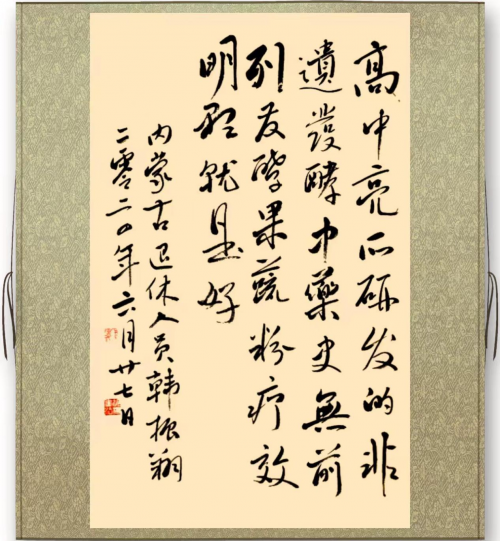 高中亮所研发的非
遗發酵中藥史無前
列友酵果蔬粉疗效
明显就是好
内蒙古退休人员韩振翔
二零二0年六月廿七日